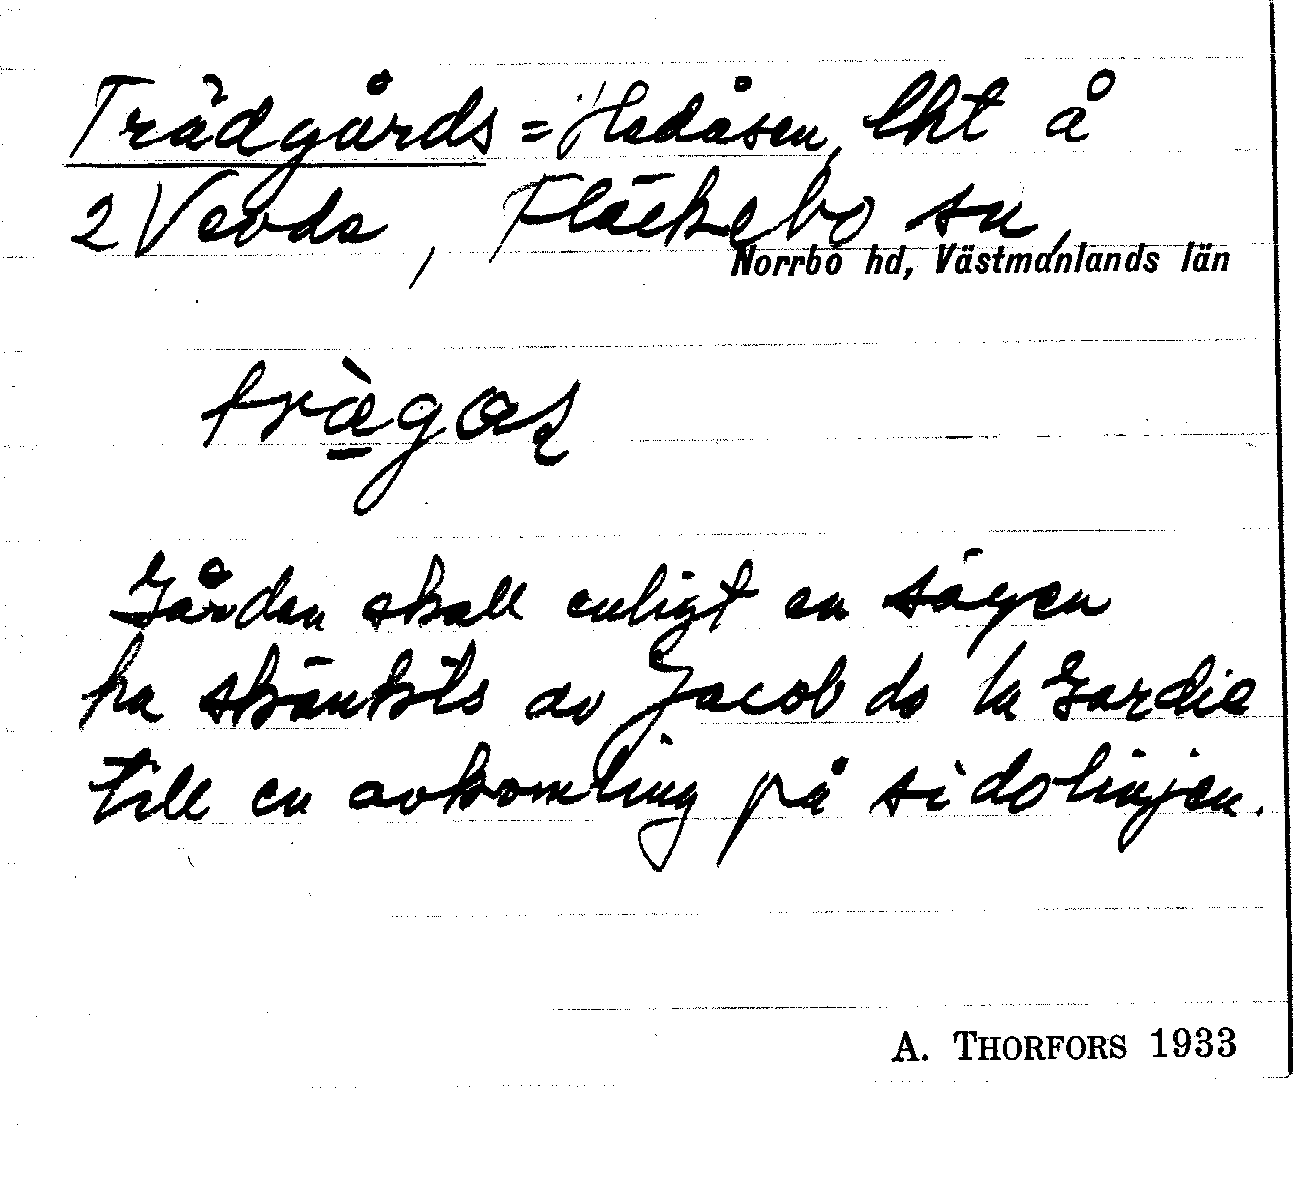 Trädgårds = Hedåsen, lht å
2 Vevde, Fläckebo sn,
Norrbo hd, Västmanlands län
trægaʂ
Gården skall enligt en sägen
ha skänkts av Jacob de la Gardie
till en avkomling på sidolinjen.
A. THORFORS 1933